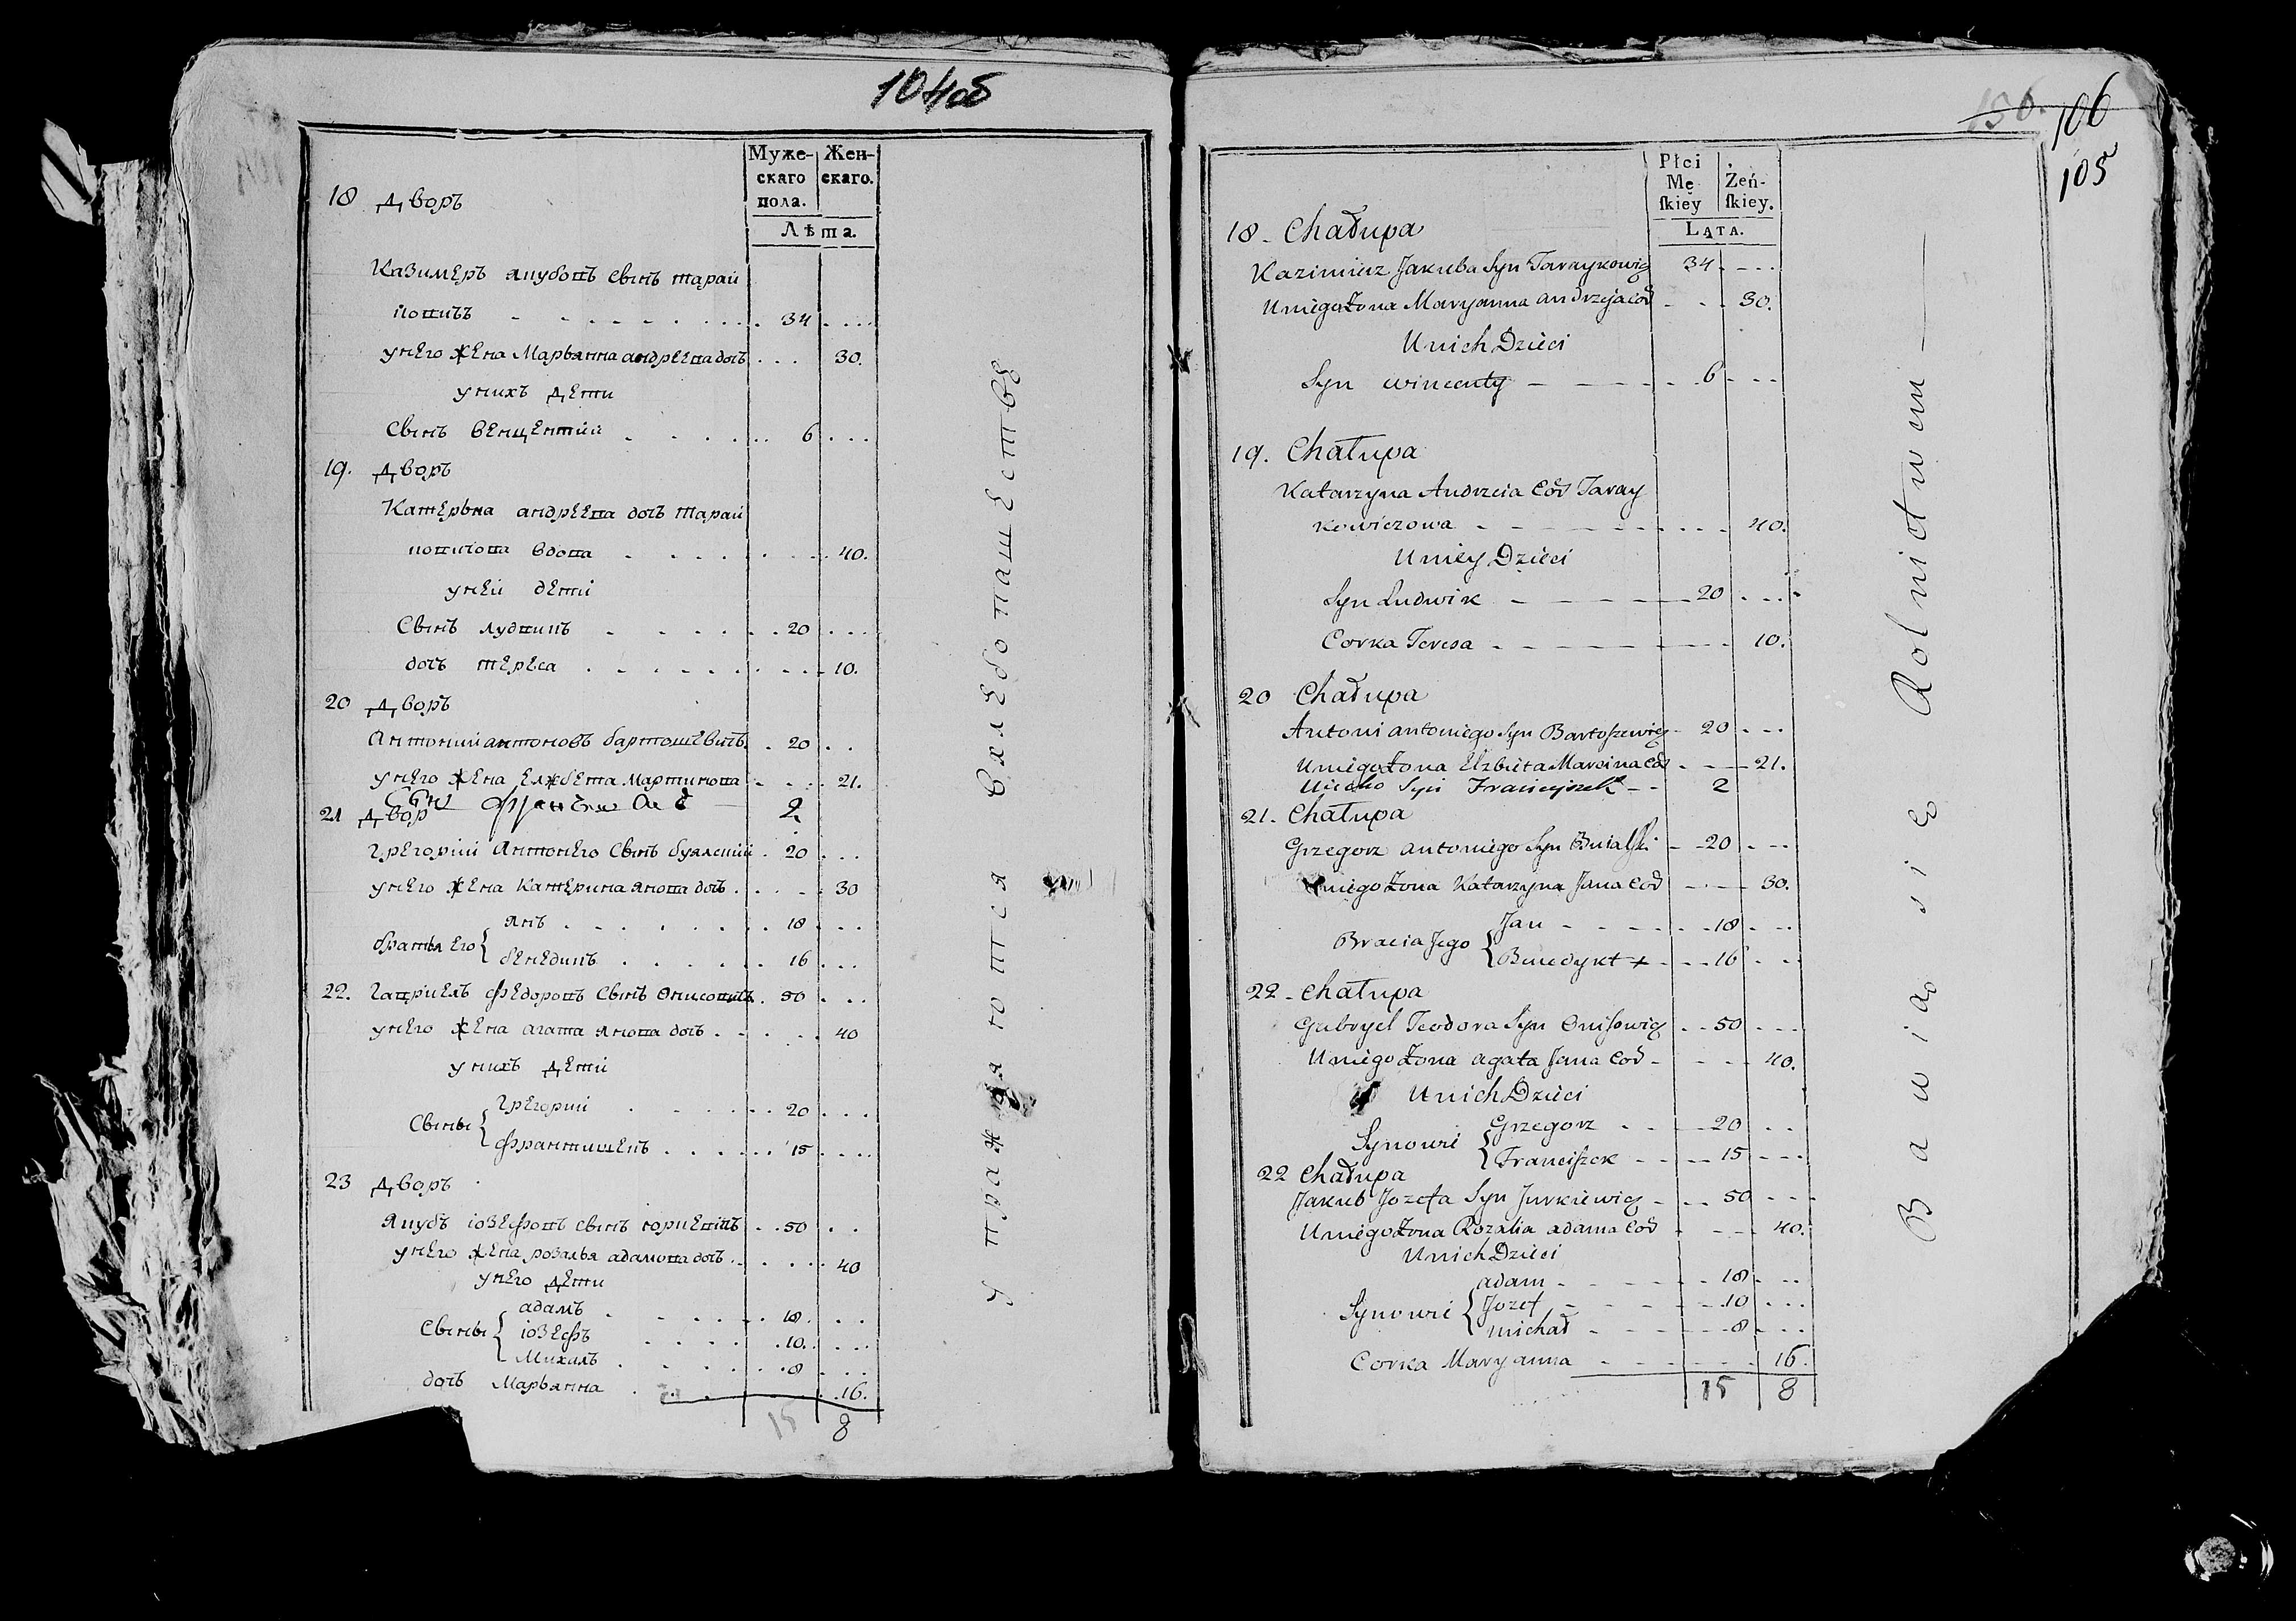 104об
Муже- Жен-
скаго скаго.
пола.
Лѣта.
18 Дворъ
Казимеръ Якубовъ Свинъ Тарай
ковичъ 34
у него жена Марьянна андреева дочь 30.
у нихъ дети
Свинъ Венцентий 6
19. Дворъ
Катерина андреева дочь Тарай
ковичова вдова 40.
у ней дети
Свинъ лудвикъ 20
дочь тереса 10.
20 Дворъ
Антоний антоновъ бартошевичъ 20
у него жена елжбета мартинова 21.
2
21 Двор
Грегорий Антонего Свинъ буялский 20
у него жена Катерина янова дочь 30
братья его { янъ 18
бенедикъ 16
22. Гавриелъ федоровъ Свинъ Онисовичъ 50
у него жена агата янова дочь 40
у нихъ дети
Свины { Грегорий 20
франтишекъ 15
23 Дворъ
Якубъ іозефовъ свинъ юркевичъ 50
у него жена розалья адамова дочь 40
у него дети
Свины { адамъ 18
іозефъ 10.
Михалъ 8
дочь Марьянна 16.
15 8
Упражняются в хлебопашестве
156. 106
105
Płci Żeń-
Mę skiey.
skiey
Lata.
18 - Chałupa
Kazimierz Jakuba Syn Taraykowicz 34
U niego Żona Maryanna andrzeja Cod 30.
U nich Dzieci
Syn wincenty 6
19. Chałupa
Katarzyna Andrzeia Cod Taray
kowiczowa 40.
U niey Dzieci
Syn Ludwik 20
Corka Teresa 10.
20 Chałupa
Antoni antoniego Syn Bartoszewicz 20
U niego Żona Elzbieta Marcina Cod 21.
Syn Franciszek 2
21. Chałupa
Grzegorz antoniego Syn Buialski 20
U niego Żona Katarzyna Jana Cod 30.
Bracia Jego { Jan 18
Benedykt + 16
22 - Chałupa
Gabryel Teodora Syn Onisowicz 50
U niego Żona agata Jana Cod 40.
U nich Dzieci
Synowie { Grzegorz 20
Franciszek 15
22 Chałupa
Jakub Jozefa Syn Jurkiewicz 50
U niego Żona Rozalia adama Cod 40.
U nich Dzieci
Synowie { adam 18
Jozef 10
michał 8
Corka Maryanna 16.
15 8
Bawią się Rolnictwem